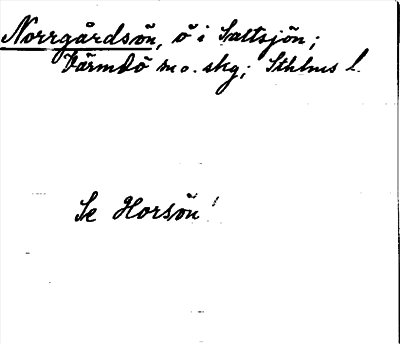 Norrgårdsön, ö i Saltsjön;
Värmdö s o. skg; Sthlms l.
Se Horsön!